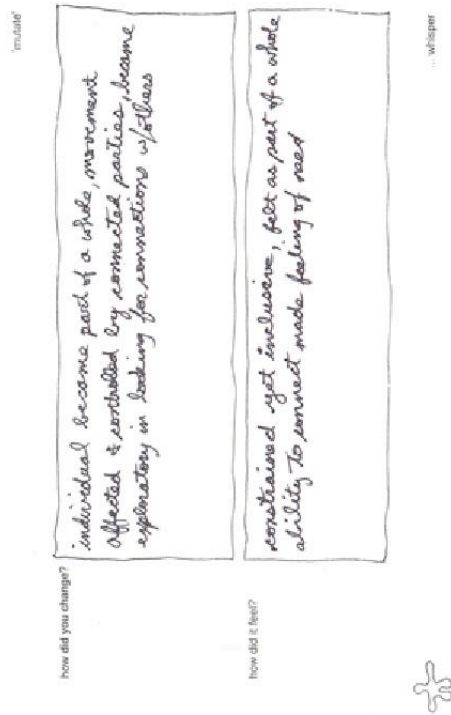 'mutate'
how did you change?
individual became part of a whole, movement
affected & controlled by connected parties, became
exploratory in looking for connections w/others
how did it feel?
constrained yet inclusive, felt as part of a whole
ability to connect made feeling of need
... whisper